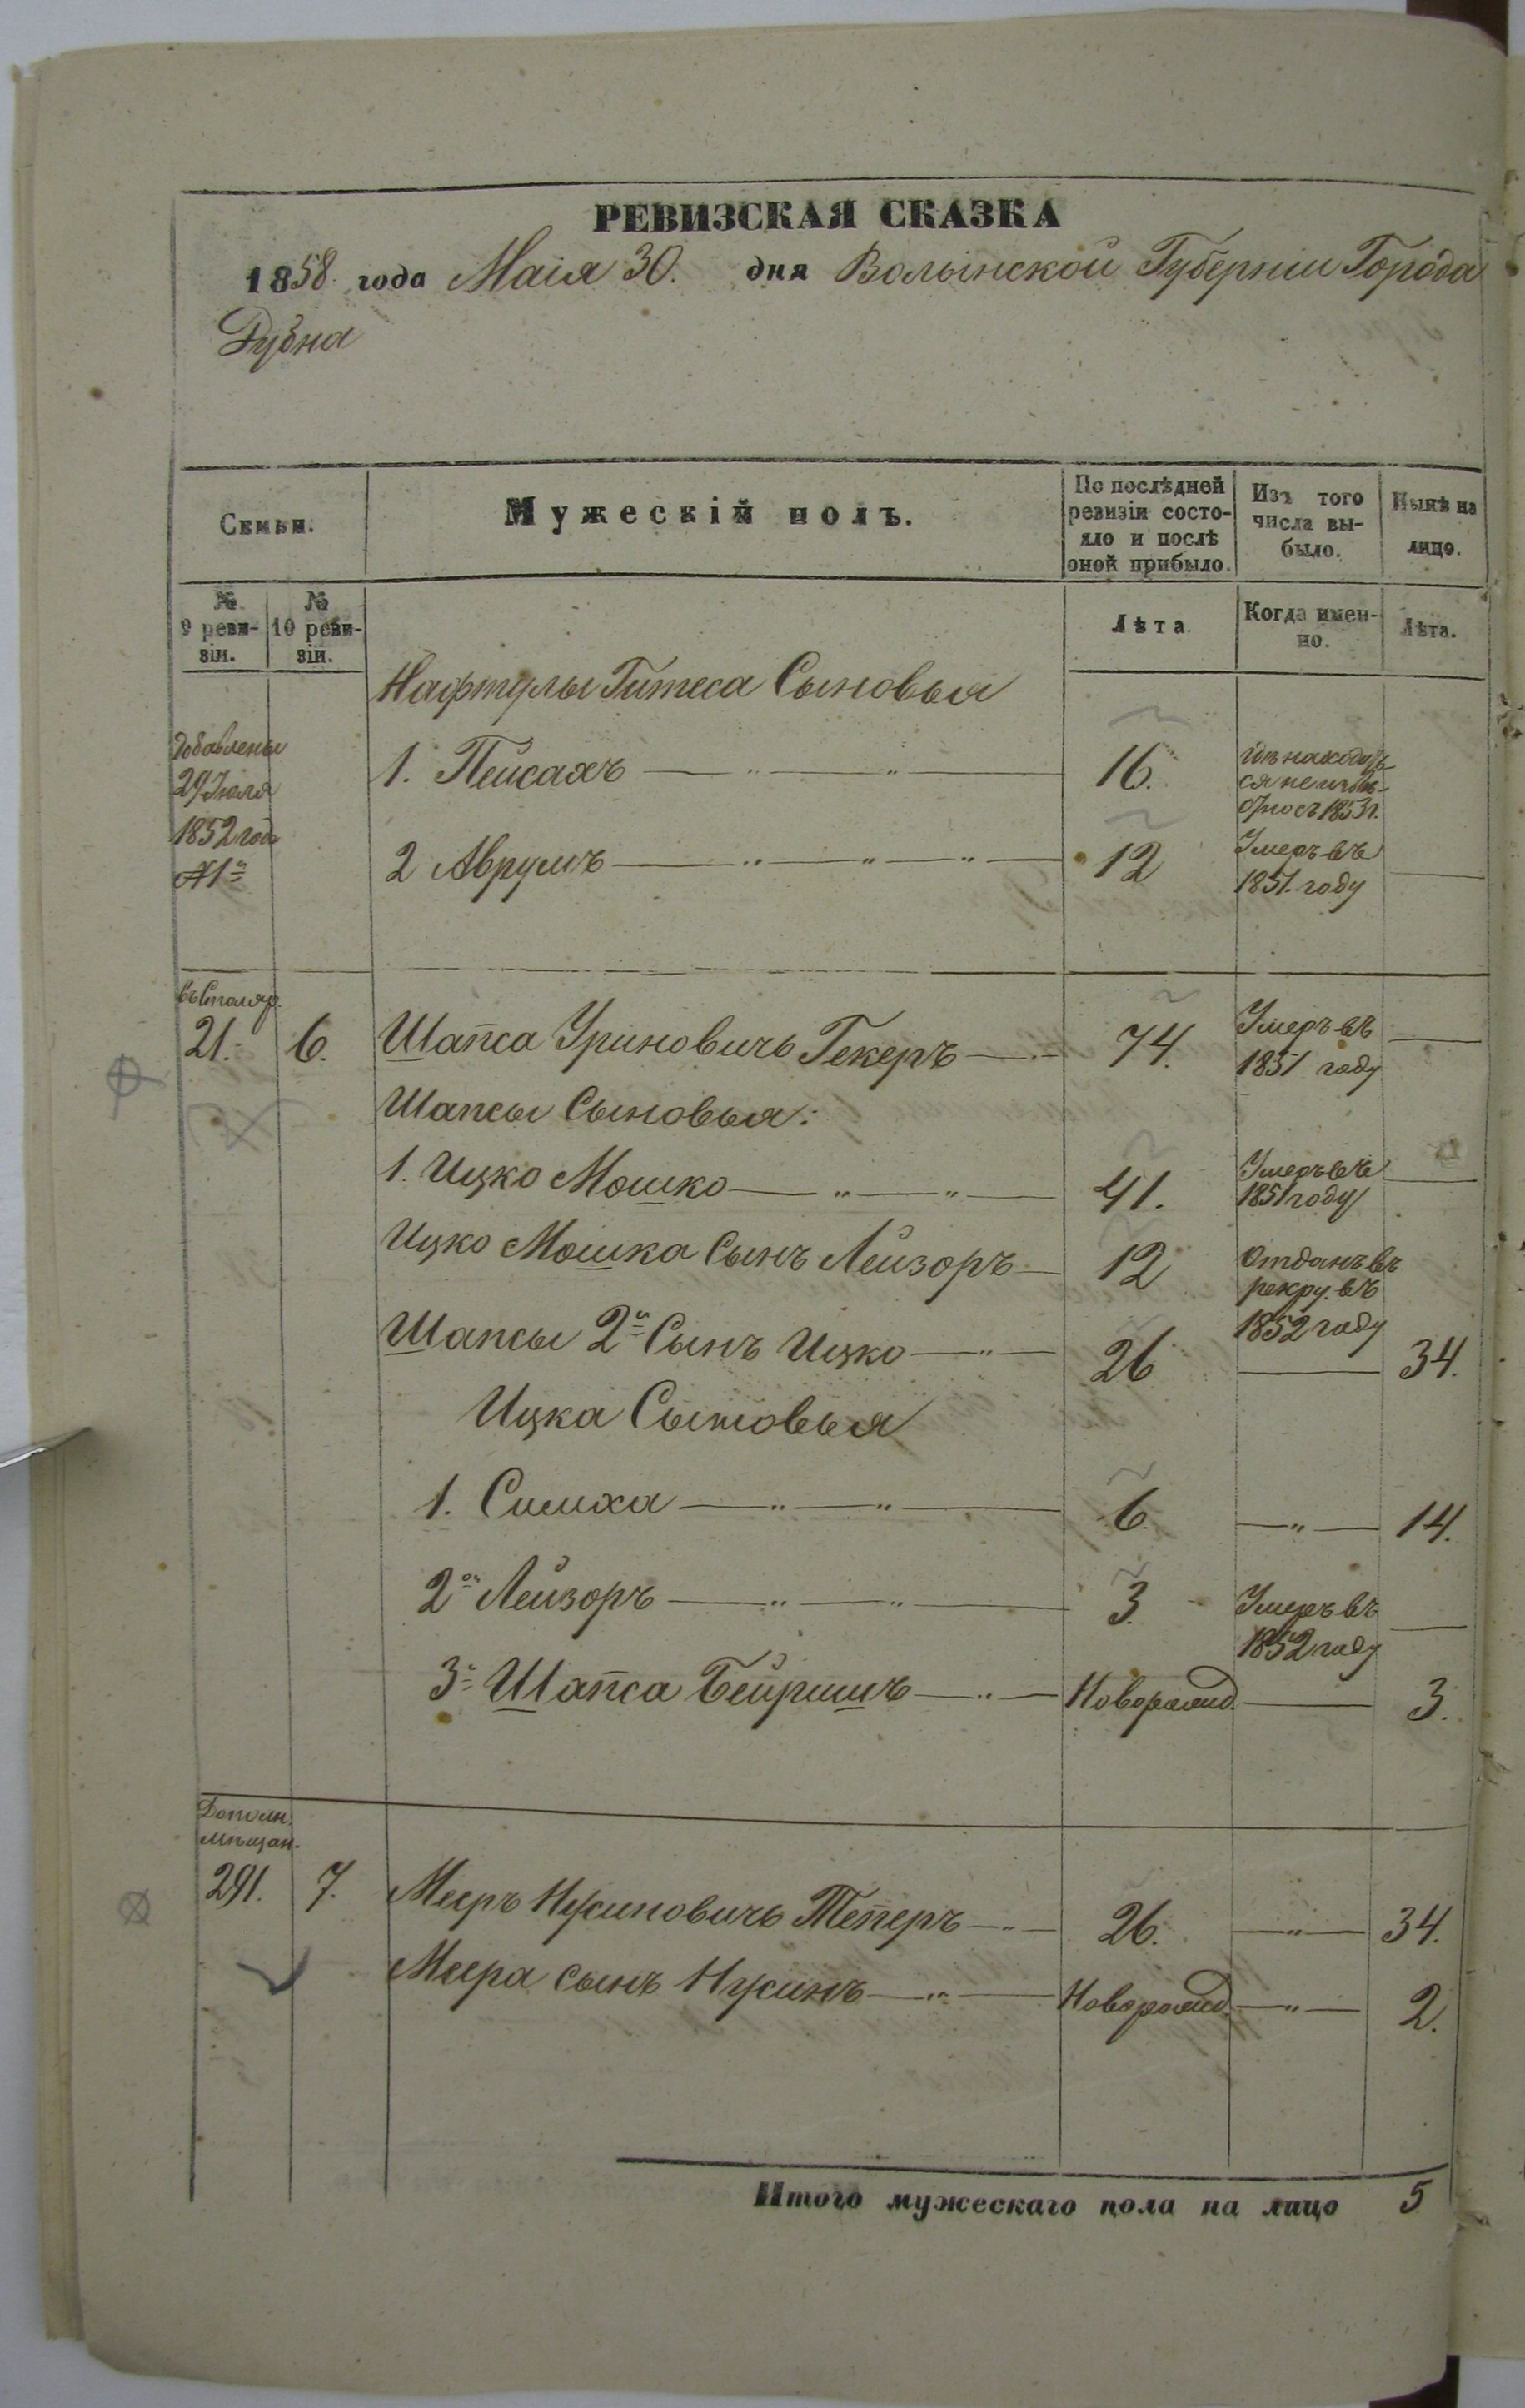 РЕВИЗСКАЯ СКАЗКА
1858 года Маія 30. дня Волынской Губерніи Города
Дубна
Семьи.
Мужескій полъ.
По послѣдней
ревизіи состо-
яло и послѣ
оной прибыло.
Изъ того
числа вы-
было.
Нынѣ на
лицо.
№
9 реви-
зіи.
№
10 реви-
зіи.
Лѣта.
Когда имен-
но.
Лѣта.
Нафтулы Гитеса Сыновья
Добавлены
29 Іюля
1852 года
№ 1й
1. Пейсахъ 16.
гдѣ находит-
ся неизвѣ-
стно съ 1853 г.
2 Аврумъ 12
Умеръ въ
1851. году
21. 6. Шапса Уриновичъ Гекеръ 74.
Умеръ въ
1851 году
Шапсы Сыновья:
1. Ицко Мошко 41.
Умеръ въ
1851 году
Ицко Мошка Сынъ Лейзоръ 12
Отданъ въ
рекру. въ
1852 году
Шапсы 2й Сынъ Ицко 26 34.
Ицка Сыновья
1. Симха 6. 14.
2й Лейзоръ 3.
Умеръ въ
1852 году
3й Шапса Бейришъ Новорожд. 3.
Дополн.
мѣщан.
291. 7. Мееръ Нусиновичъ Теперъ 26. 34.
Меера сынъ Нусинъ Новорожд. 2.
Итого мужескаго пола на лицо 5